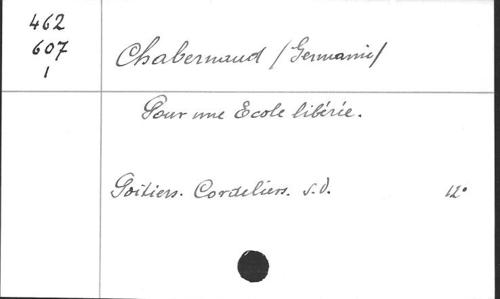 462
607
1
Chabernaud /Germanie/
Pour une Ecole libérée.
Poitiers. Cordeliers. s.d. 12°